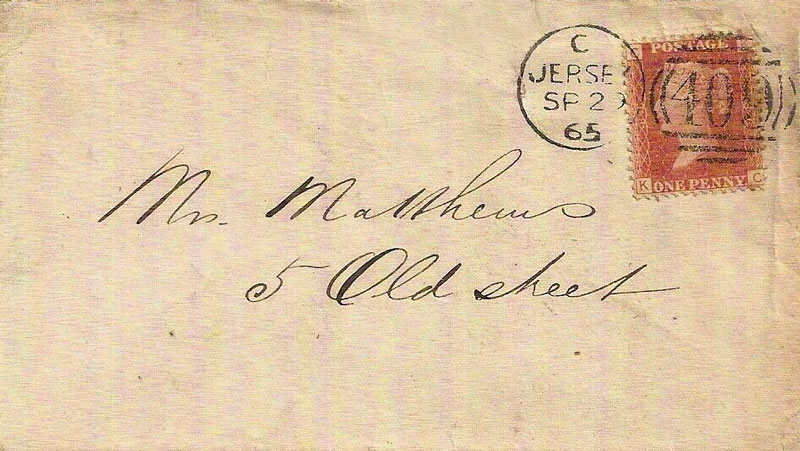 C
JERSEY
SP 29
65
POSTAGE
409
K ONE PENNY C
Mrs. Matthews
5 Old street